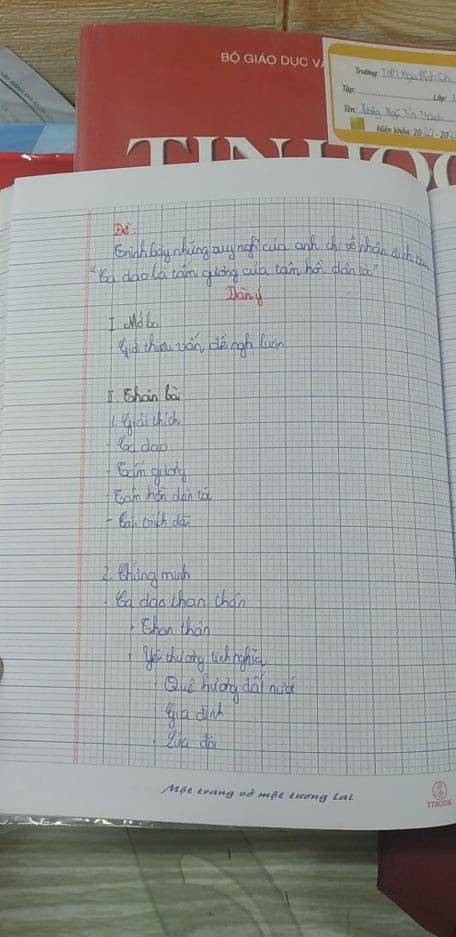 BỘ GIÁO DỤC VÀ
Trường: THPT Mạc Đĩnh Chi
Tập:
Lớp:
Tên:
Niên khóa: 2020 - 202
TIN HỌC
Đề:
Trình bày những suy nghĩ của anh chị về nhận định sau
"Ca dao là tấm gương của tâm hồn dân tộc"
Dàn ý
I. Mở bài
- Giới thiệu vấn đề nghị luận
II. Thân bài
1. Giải thích
- Ca dao
- Tấm gương
- Tâm hồn dân tộc
- Câu trích dẫn
2. Chứng minh
- Ca dao than thân
+ Than thân
+ Yêu thương tình nghĩa
Quê hương đất nước
Gia đình
. Lứa đôi
Một trang vở một tương lai
TTBOOK